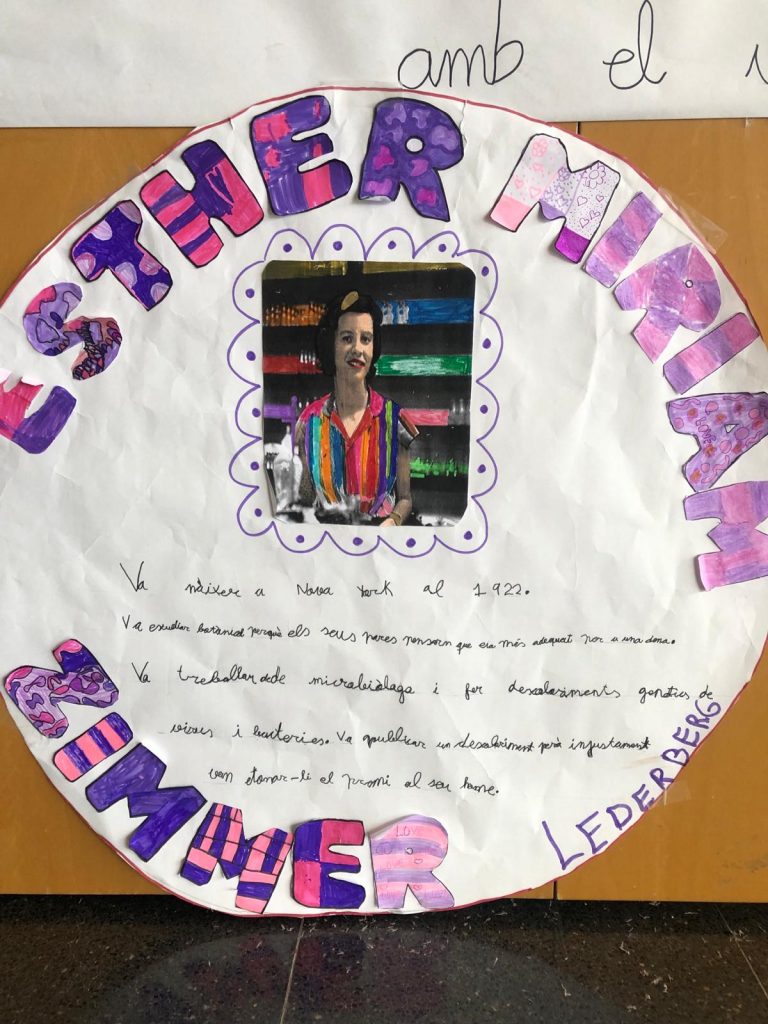 amb el
ESTHER MIRIAM
Va nàixer a Nova York al 1922.
Va estudiar botànica perquè els seus pares pensaven que era més adequat per a una dona.
Va treballar de microbiòloga i fer descobriments genètics de
virus i bacteries. Va publicar un descobriment però injustament
van donar-li el premi al seu home.
ZIMMER
LEDERBERG
LOVE